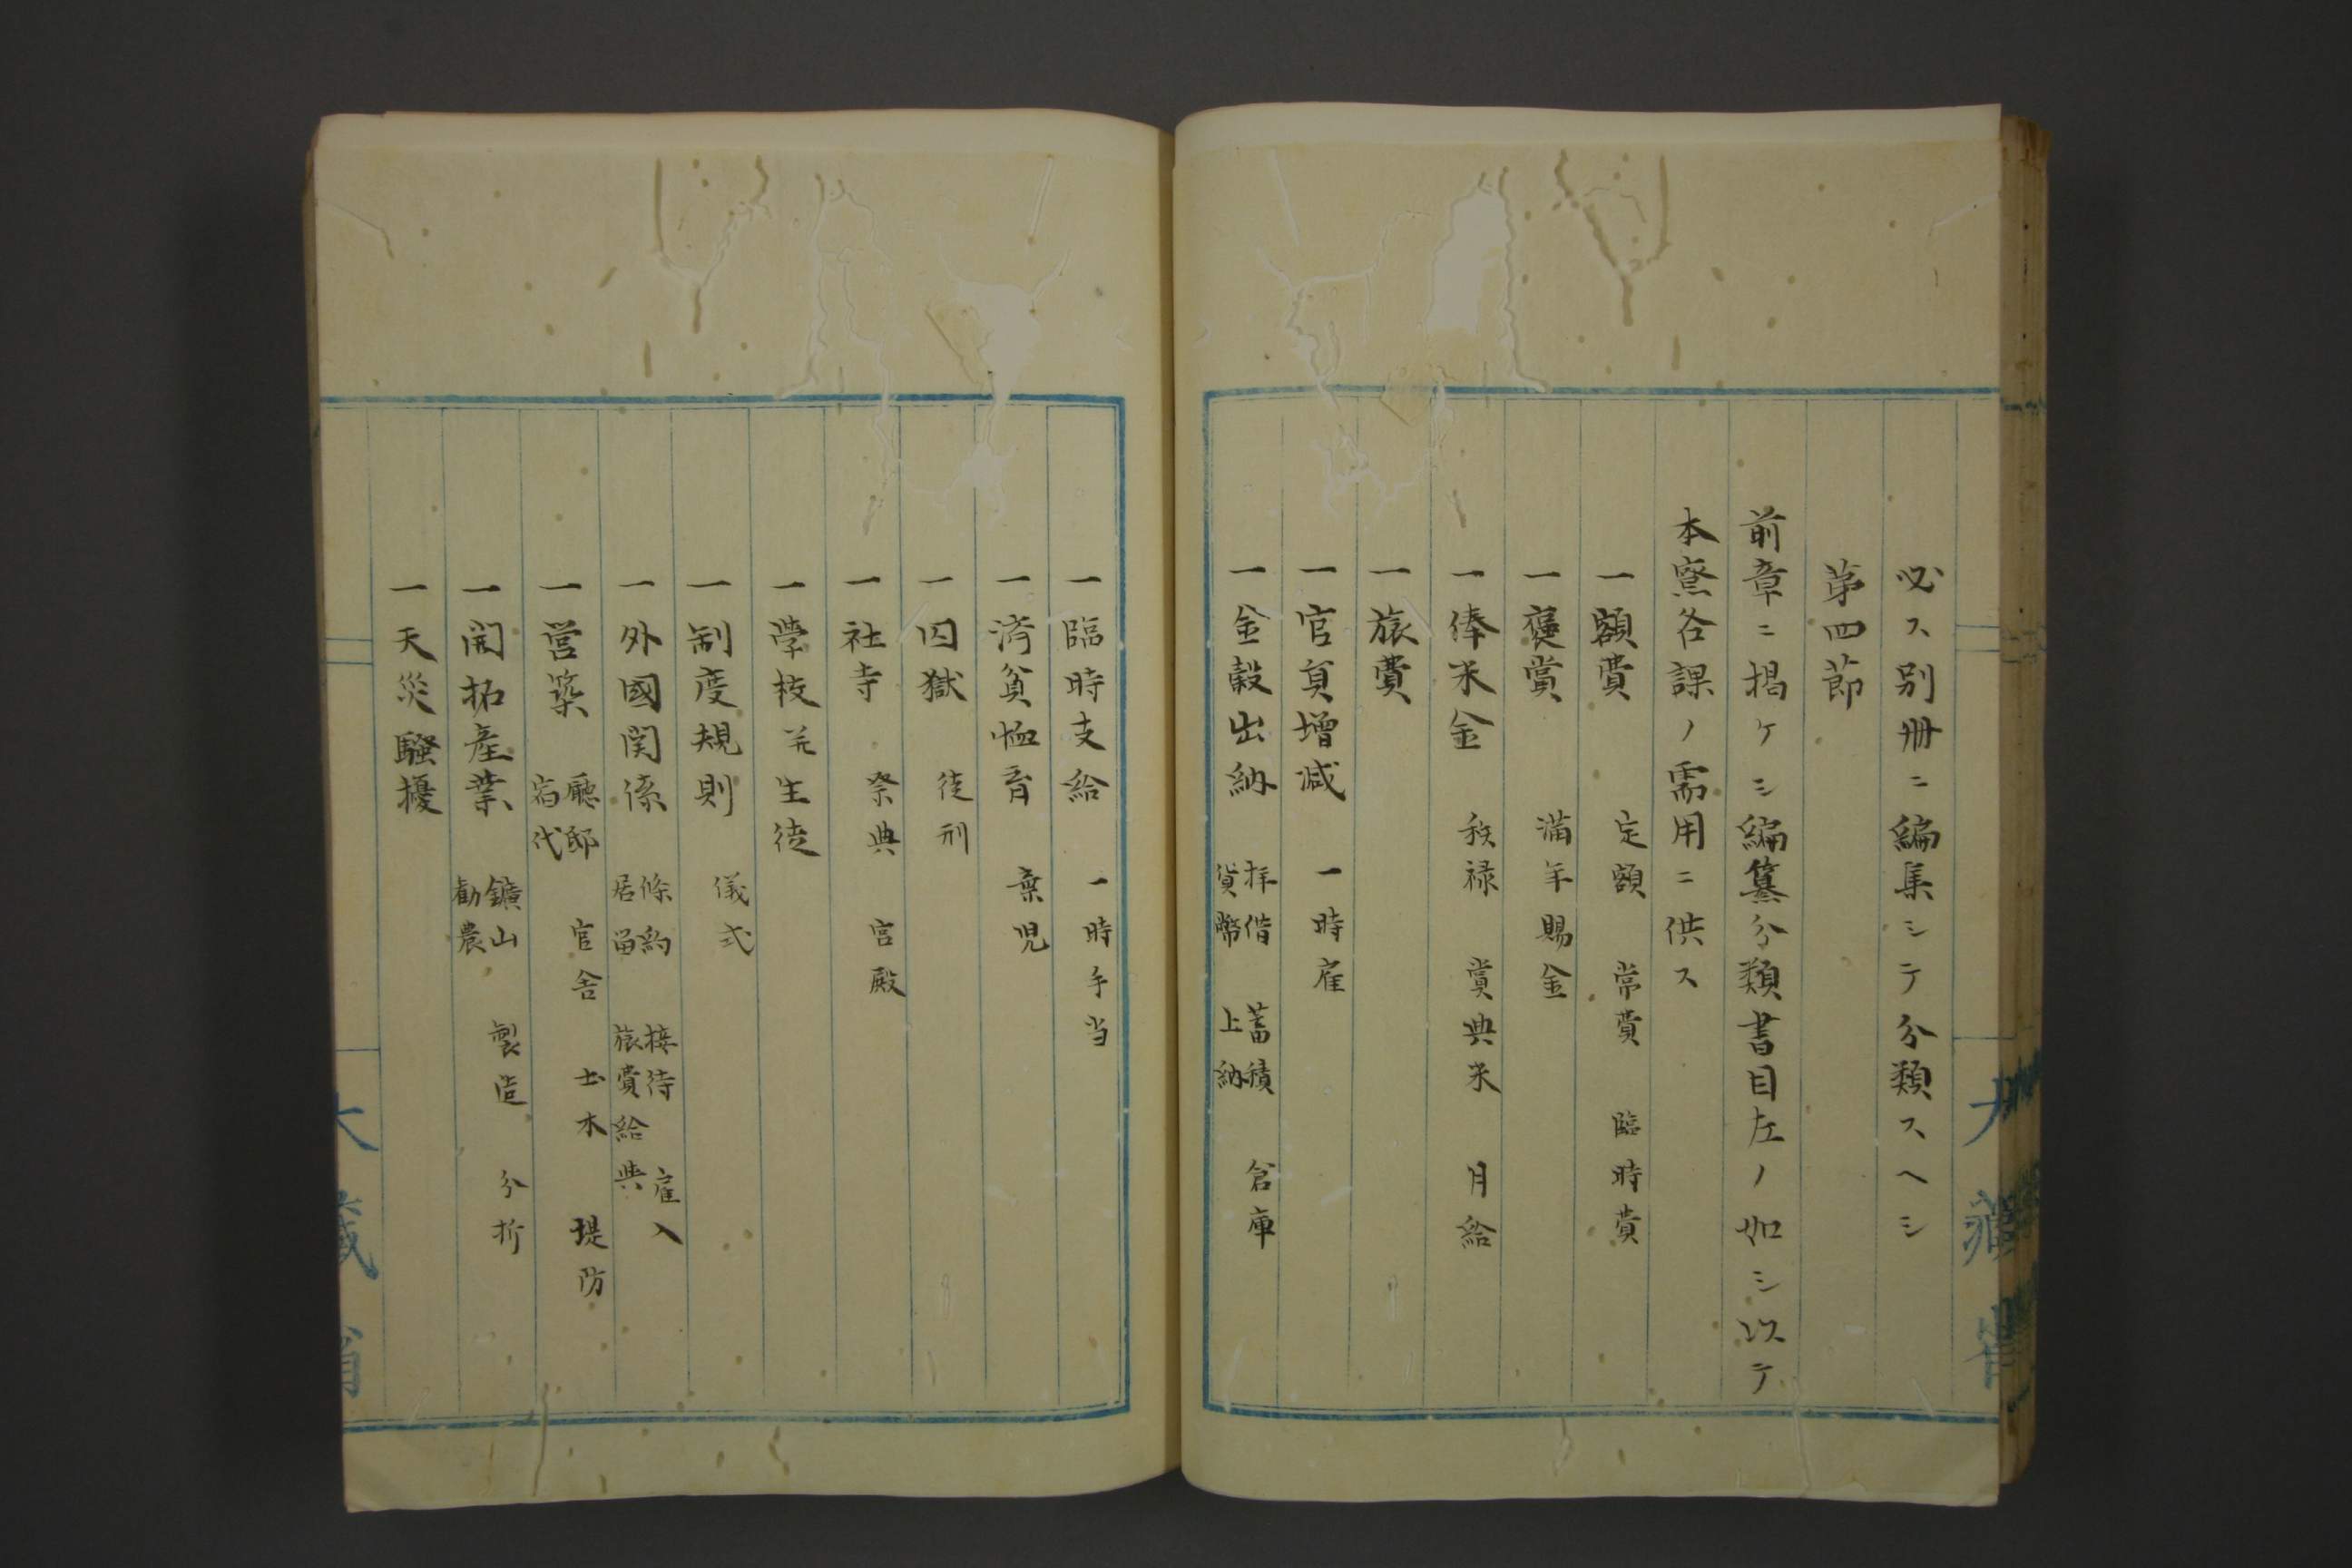 必ス別冊ニ編集シテ分類スヘシ
第四節
前章ニ掲ケシ編纂分類書目左ノ如シ以テ
本寮各課ノ需用ニ供ス
一額費 定額 常費 臨時費
一褒賞 満年賜金
一俸米金 秩禄 賞典米 月給
一旅費
一官員増減 一時雇
一金穀出納 拝借 貨幣 蓄積 上納 倉庫
一臨時支給 一時手当
一済貧恤育 棄児
一囚獄 徒刑
一社寺 祭典 宮殿
一学校并生徒
一制度規則 儀式
一外國関係 條約 居留 接待 旅費給與 雇入
一営築 廳邸 宿代 官舎 土木 堤防
一開拓産業 鑛山 勧農 製造 分析
一天災騒擾
大藏省
大藏省